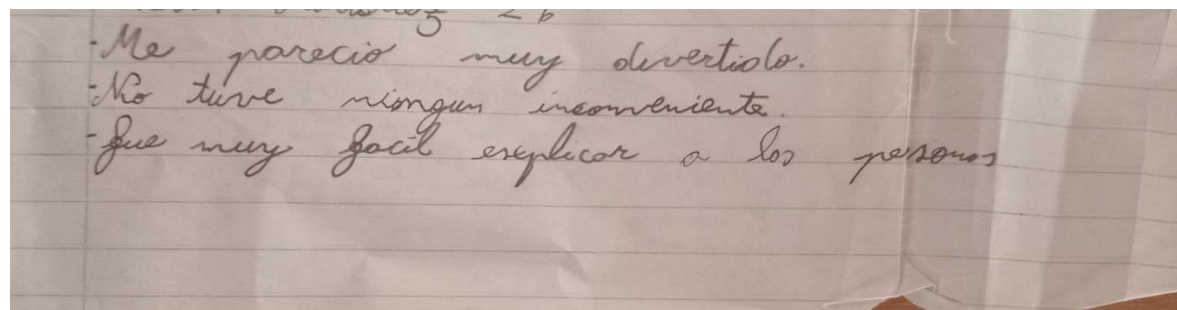 2 b
-Me parecio muy divertido.
-No tuve niongun inconveniente.
-fue muy facil explicar a las personas